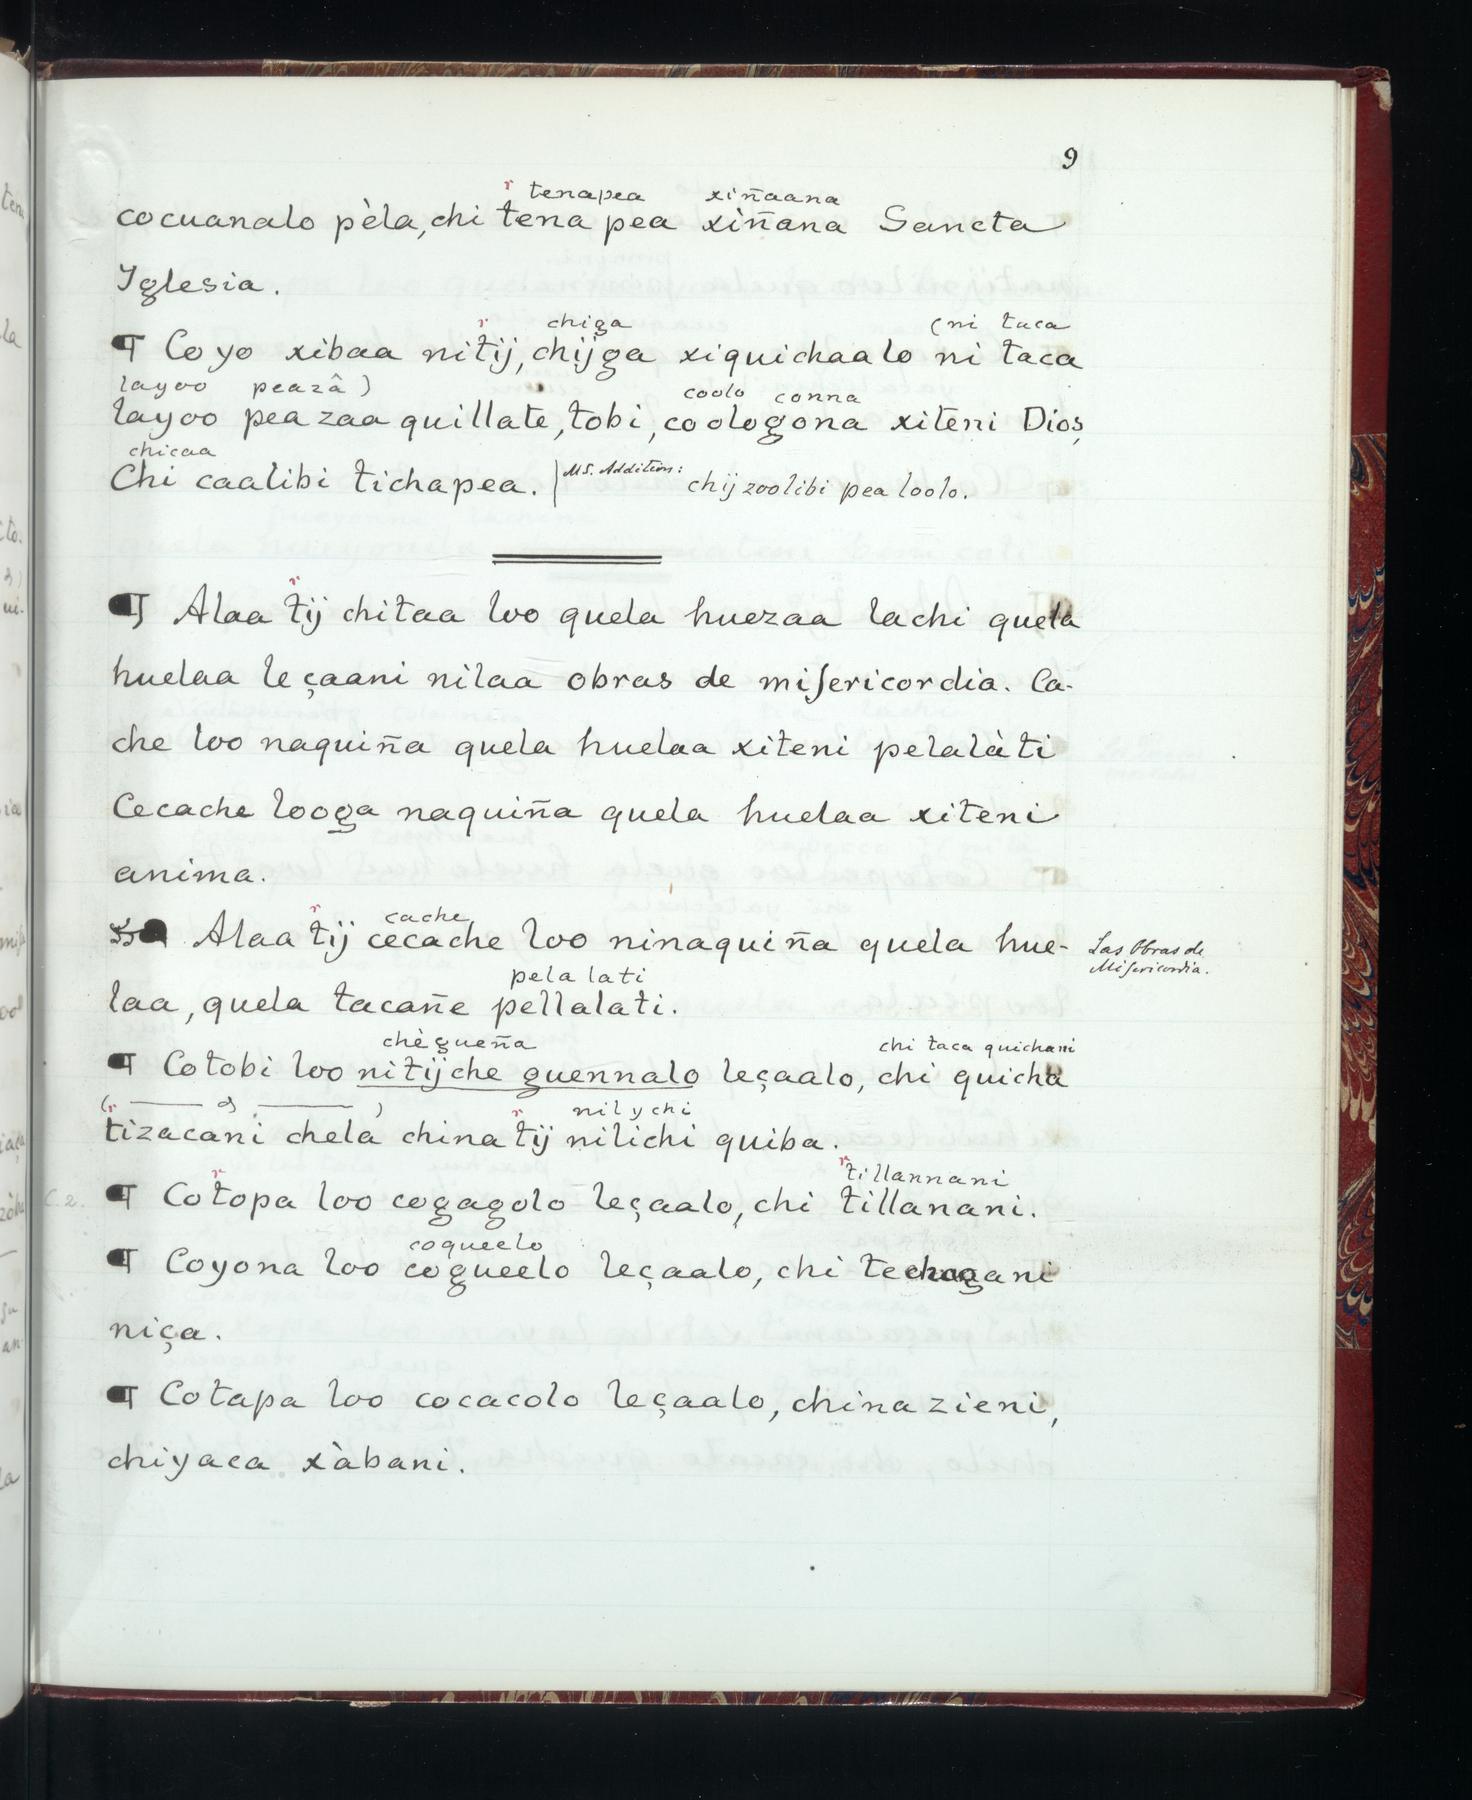 9
r tenapea xiñaana
cocuanalo pèla, chi tena pea xìñana Sancta
Iglesia.
r chiga (ni taca
¶ Coyo xibaa nitij, chijga xiquichaalo ni taca
layoo peazâ)
layoo pea zaa quillate, tobi, coologona xiteni Dios,
coolo conna
chicaa
Chi caalibi tichapea. | MS. Addition: chij zoolibi pea loolo.
r
¶ Alaa tij chitaa loo quela huezaa lachi quela
huelaa leçaani nilaa obras de miſericordia. Ca-
che loo naquiña quela huelaa xiteni pelalàti
Cecache looga naquiña quela huelaa xiteni
anima.
r cache
Alaa tij cecache loo ninaquiña quela hue-
Las Obras de
Miſericordia.
pela lati
laa, quela tacañe pellalati.
chègueña chi taca quichani
¶ Cotobi loo nitijche guennalo leçaalo, chi quicha
r r nilychi
tizacani chela china tij nilichi quiba.
r r tillannani
¶ Cotopa loo cogagolo leçaalo, chi tillanani.
coqueelo
¶ Coyona loo cogueelo leçaalo, chi techogani
niça.
¶ Cotapa loo cocacolo leçaalo, china zieni,
chiyaca xàbani.